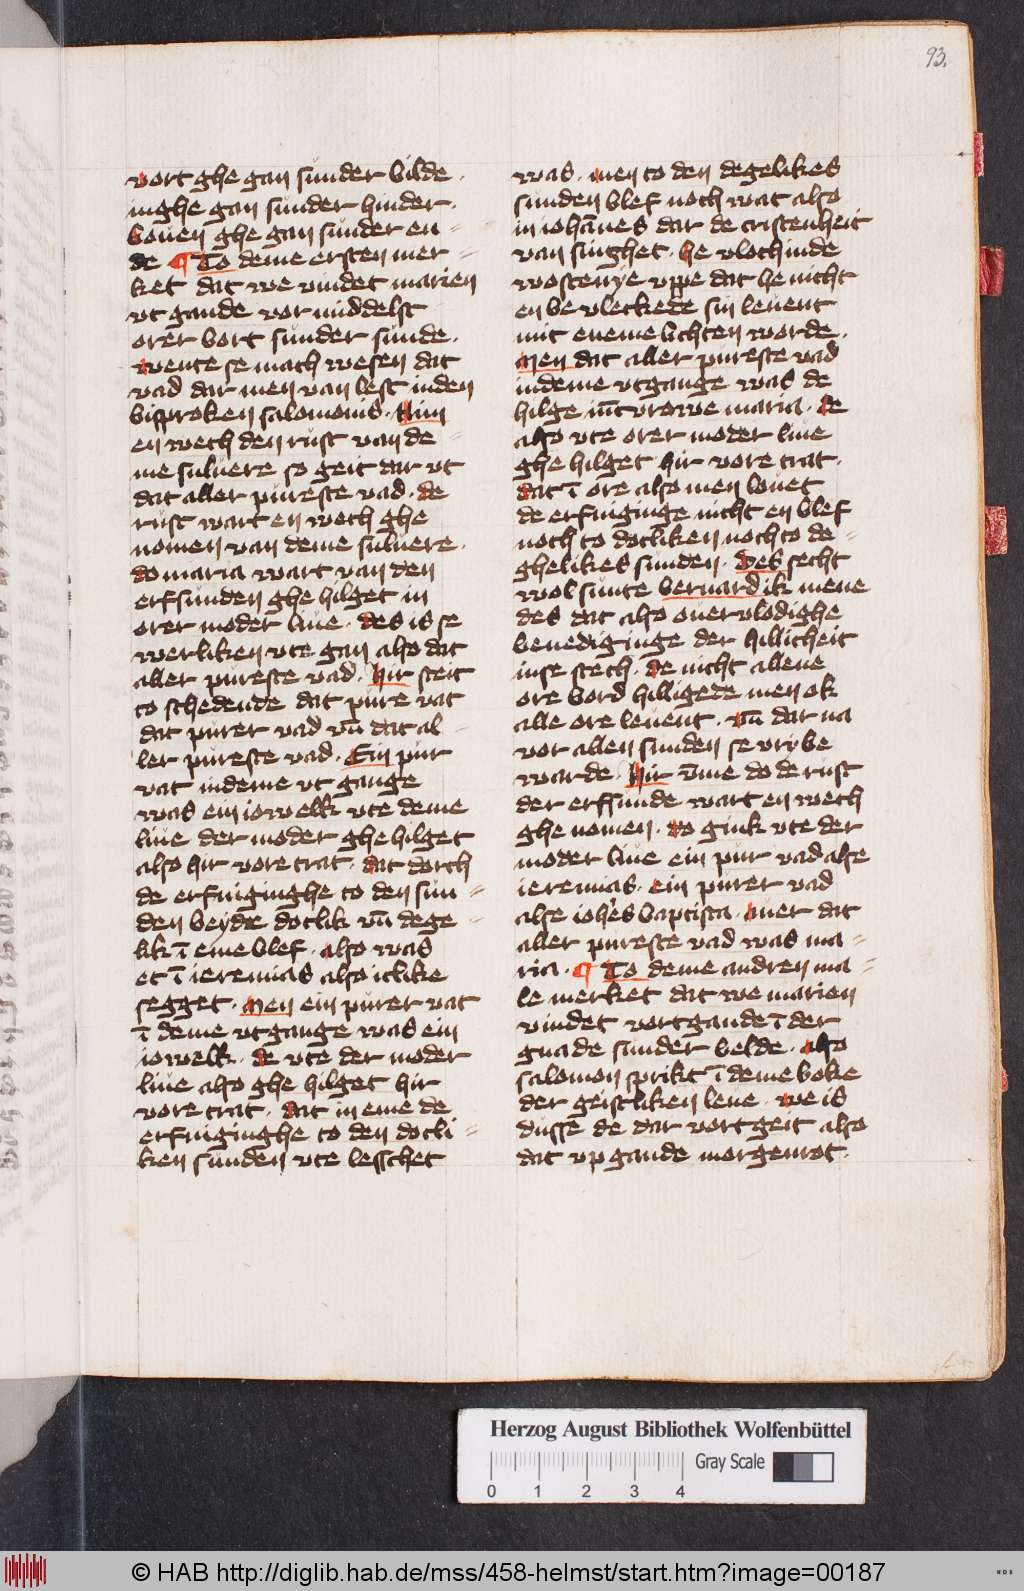 93.
vort ghe gan sunder bilde .
inghe gan sunder hinder .
bouen ghe gan sunder en =
de ¶ To deme ersten mer =
ket dat we vindet marien
vt gande vormiddelst
orer bort sunder sunde .
wente se mach wesen dat
vad dar men van lest inden
bisproken salomonis . Nim
en wech den rust van de =
me suluere so geit dar vt
dat aller pureste vad . de
rust wart en wech ghe
nomen van deme suluere .
do maria wart van den
erfsunden ghe hilget in
orer moder liue . des is se
werliken vte gan also dat
aller pureste vad . hir steit
to schedende dat pure vat
dat purer vad vn̄ dat al =
ler pureste vad . Ein pur
vat indeme vt gange
was ein iowelk vte deme
liue der moder ghe hilget
also hir vore trat . dat dorch
de erfniginghe to den sun =
den beyde dotlik vn̄ dege =
lik ī eme blef . also was
et ī ieremias also iclike
segget . Men ein purer vat
ī deme vtgange was ein
iowelk . de vte der moder
liue also ghe hilget hir
vore trat . dat in eme de
erfniginghe to den dotli =
ken sunden vte lesschet
was . men to den degelikes
sunden blef noch wat also
in iohān̄es dar de cristenheit
van singhet . he vloch inde
wostenye vppe dat he nicht
en be vleckede sin leuent
mit eneme lichten worde .
Men dat aller pureste vad
indeme vtgange was de
hilge iūcvrowe maria . de
also vte orer moder liue
ghe hilget hir vore trat .
dat ī ore also men louet
de erfniginge nicht en blef
noch to dotliken noch to de =
ghelikes sunden . Des secht
wol sunte bernard ik mene
des dat also ouervlodighe
benediginge der hillicheit
inse stech . de nicht allene
ore bord hilligede men ok
alle ore leuent . vn̄ dar na
vor allen sunden se vrybe
warde . Hir v̄me do de rust
der erfsunde wart en wech
ghe nomen . do gink vte der
moder liue ein pur vad alse
ieremias . ein purer vad
alse ioh̄es baptista . auer dat
aller pureste vad was ma =
ria . ¶ To deme andren ma =
le merket dat we marien
vindet vortgande ī der
gnade sunder belde . also
salomon sprikt ī deme boke
der geistliken leue . we is
dusse de dar vort geit also
dat vp gande morgenrot .
Herzog August Bibliothek Wolfenbüttel
Gray Scale
0 1 2 3 4
© HAB http://diglib.hab.de/mss/458-helmst/start.htm?image=00187